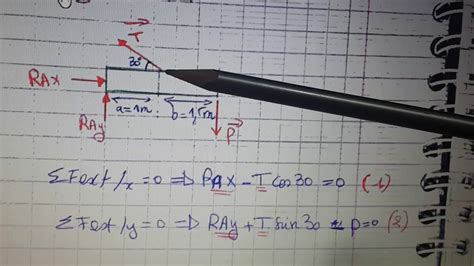 T
30°
RAx
a=1m
b=1,5m
RAy
P
ΣFext/x = 0 => RAx - T cos30 = 0 (1)
ΣFext/y = 0 => RAy + T sin30 - p = 0 (2)